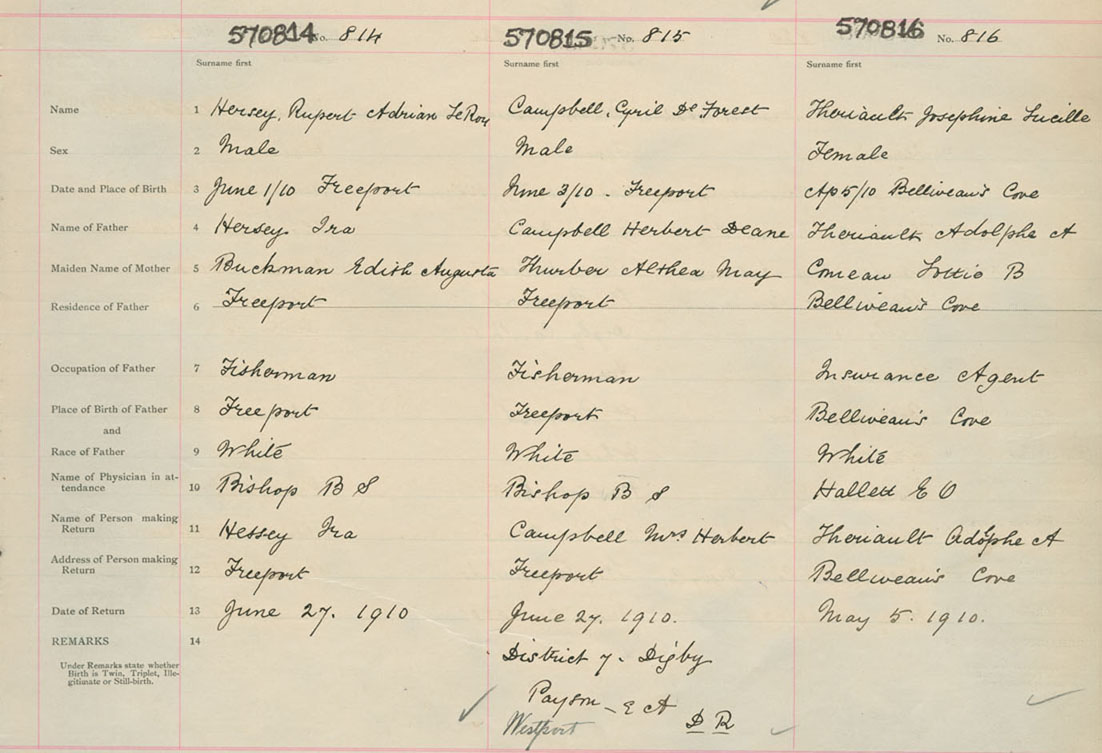 570814 No. 814 570815 No. 815 570816 No. 816
Surname first Surname first Surname first
Name 1 Hersey, Rupert Adrian LeRoy Campbell, Cyril De Forest Theriault Josephine Lucille
Sex 2 Male Male Female
Date and Place of Birth 3 June 1/10 Freeport June 3/10 - Freeport Ap 5/10 Belliveau's Cove
Name of Father 4 Hersey. Ira Campbell Herbert Deane Theriault Adolphe A
Maiden Name of Mother 5 Buckman Edith Augusta Thurber Althea May Comeau Lottie B
Residence of Father 6 Freeport Freeport Belliveau's Cove
Occupation of Father 7 Fisherman Fisherman Insurance Agent
Place of Birth of Father 8 Freeport Freeport Belliveau's Cove
and
Race of Father 9 White White White
Name of Physician in at-
tendance 10 Bishop B S Bishop B S Hallett E O
Name of Person making
Return 11 Hessey Ira Campbell Mrs Herbert Theriault Adolphe A
Address of Person making
Return 12 Freeport Freeport Belliveau's Cove
Date of Return 13 June 27. 1910 June 27. 1910. May 5. 1910.
REMARKS 14
Under Remarks state whether
Birth is Twin, Triplet, Ille-
gitimate or Still-birth.
District 7. Digby
Payson - E A D R
Westport